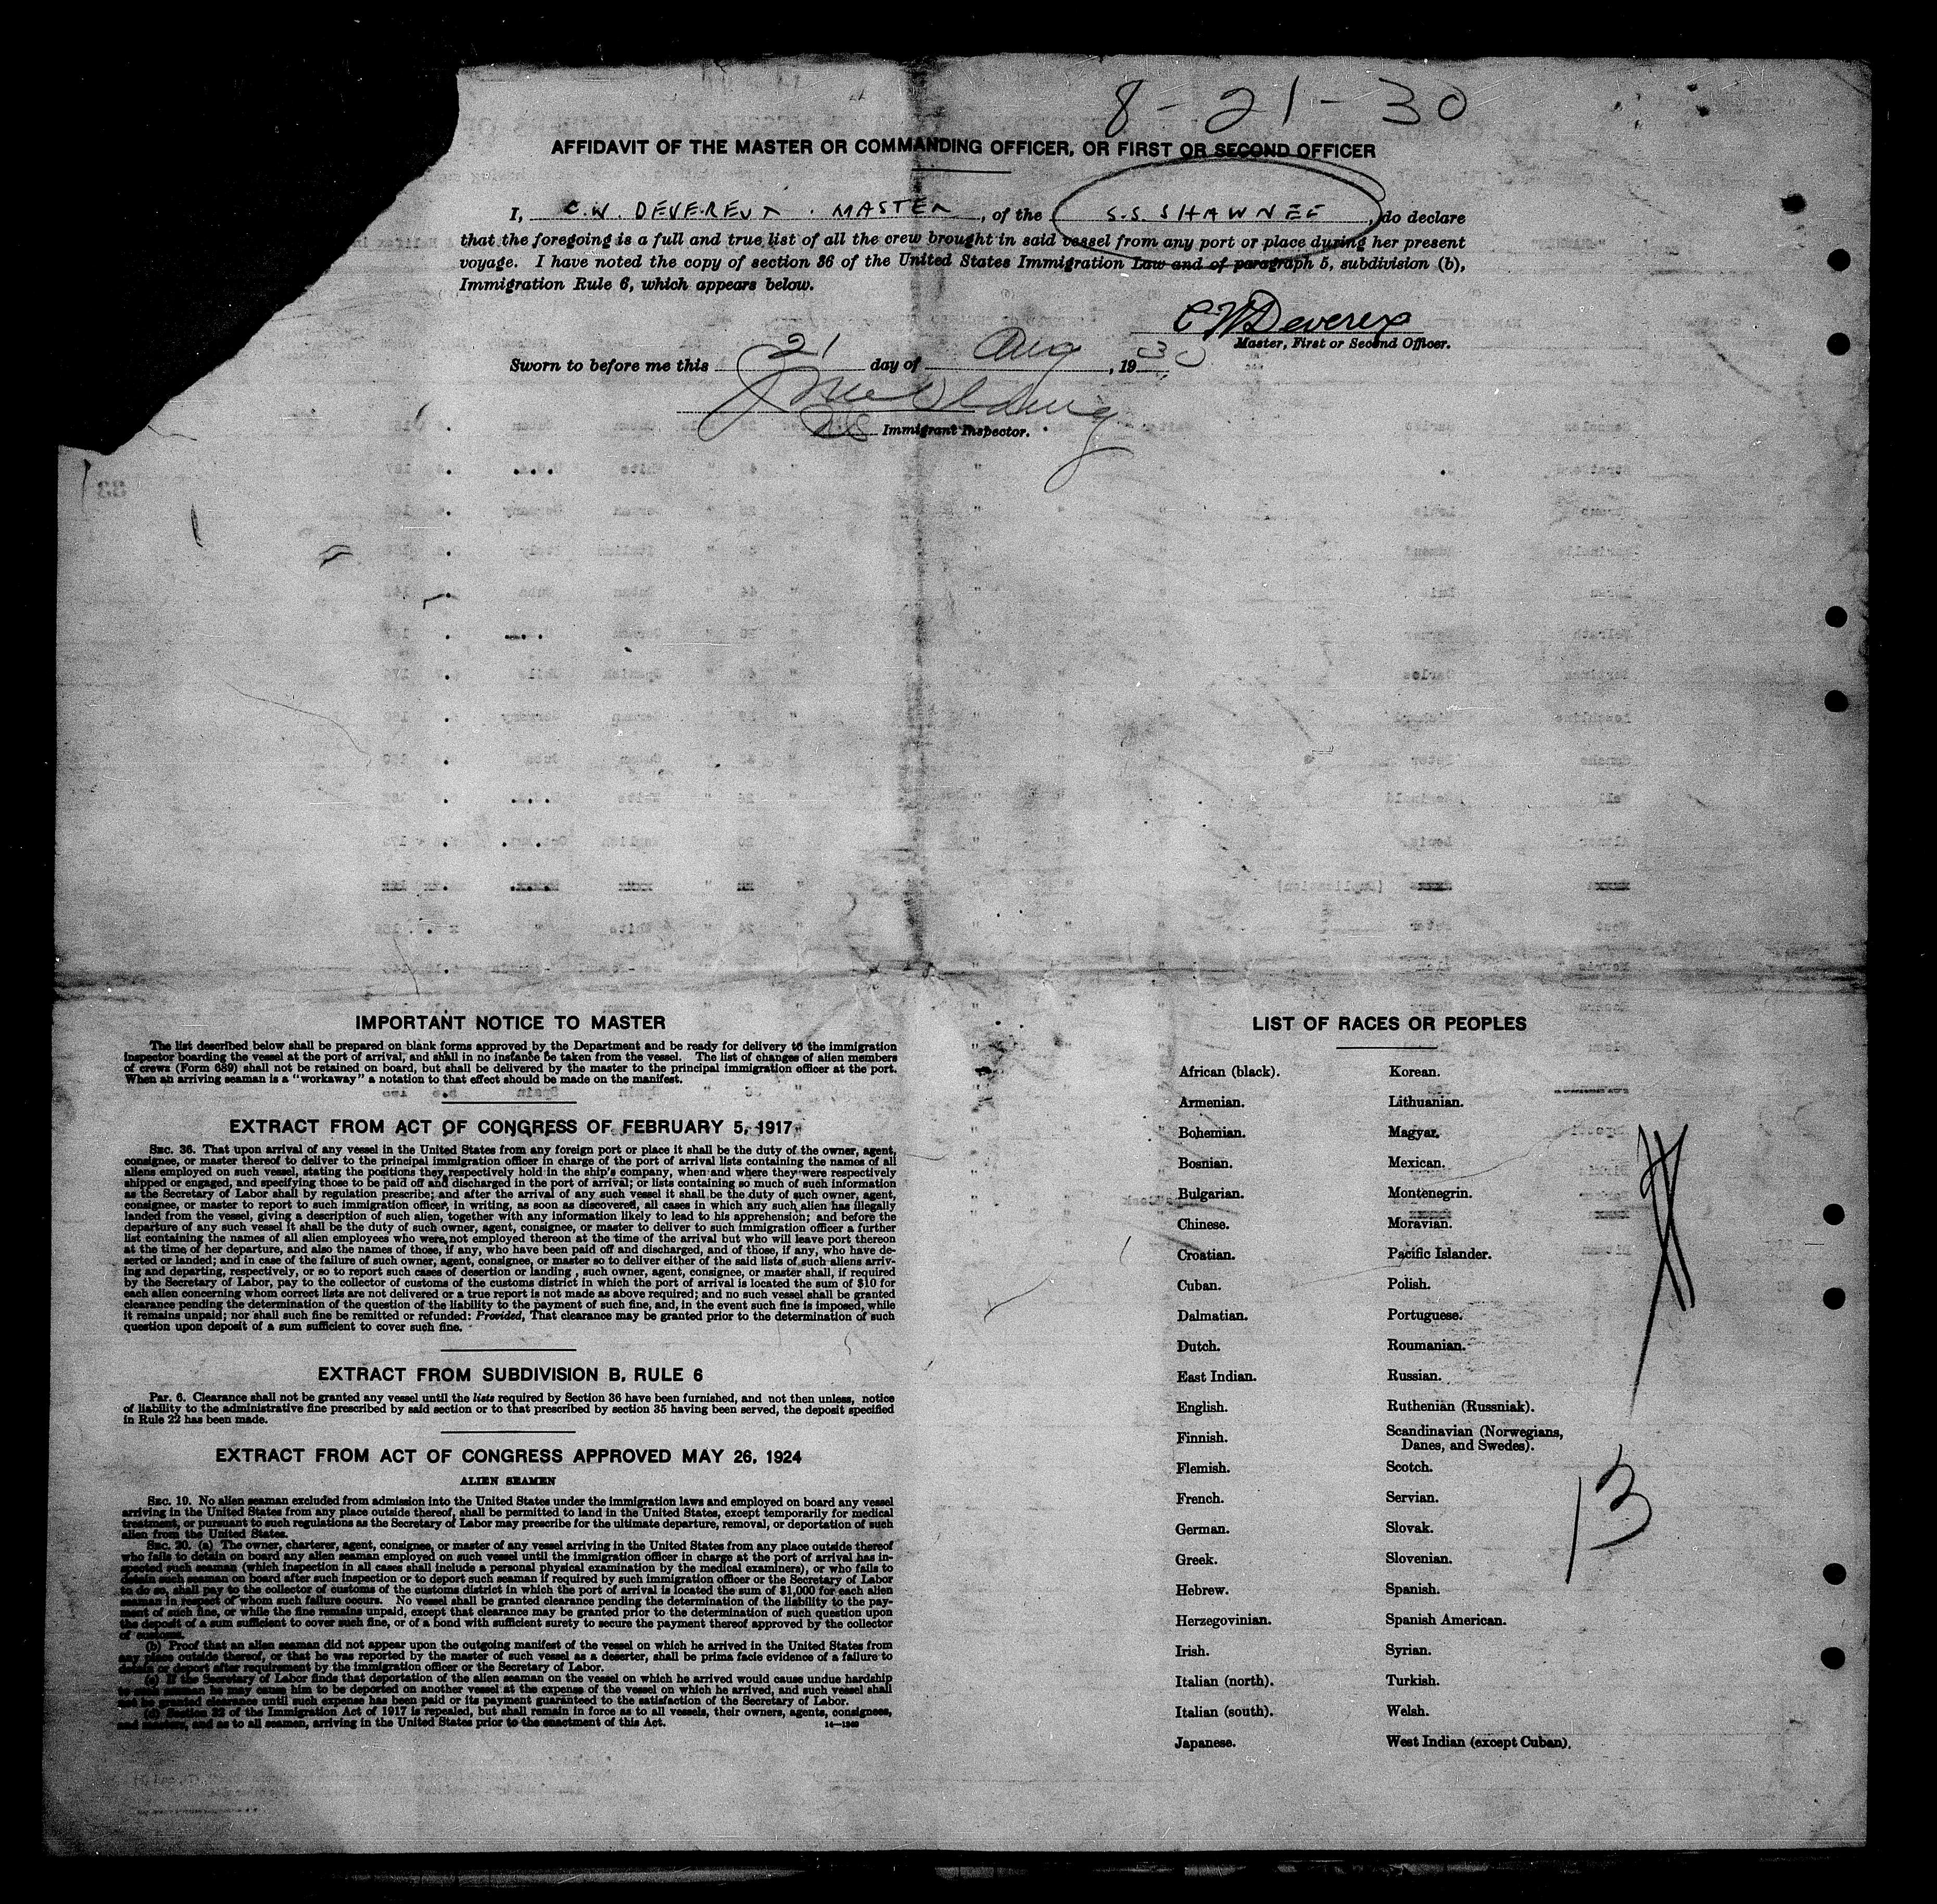 8-21-30
AFFIDAVIT OF THE MASTER OR COMMANDING OFFICER, OR FIRST OR SECOND OFFICER
I, C.W. DEVEREUX. MASTER, of the S.S. SHAWNEE, do declare
that the foregoing is a full and true list of all the crew brought in said vessel from any port or place during her present
voyage. I have noted the copy of section 36 of the United States Immigration Law and of paragraph 5, subdivision (b),
Immigration Rule 6, which appears below.
C W Devereux
Master, First or Second Officer.
Sworn to before me this 21 day of Aug, 1930
Immigrant Inspector.
IMPORTANT NOTICE TO MASTER
The list described below shall be prepared on blank forms approved by the Department and be ready for delivery to the immigration
inspector boarding the vessel at the port of arrival, and shall in no instance be taken from the vessel. The list of changes of alien members
of crews (Form 689) shall not be retained on board, but shall be delivered by the master to the principal immigration officer at the port.
When an arriving seaman is a "workaway" a notation to that effect should be made on the manifest.
EXTRACT FROM ACT OF CONGRESS OF FEBRUARY 5, 1917
SEC. 36. That upon arrival of any vessel in the United States from any foreign port or place it shall be the duty of the owner, agent,
consignee, or master thereof to deliver to the principal immigration officer in charge of the port of arrival lists containing the names of all
aliens employed on such vessel, stating the positions they respectively hold in the ship's company, when and where they were respectively
shipped or engaged, and specifying those to be paid off and discharged in the port of arrival; or lists containing so much of such information
as the Secretary of Labor shall by regulation prescribe; and after the arrival of any such vessel it shall be the duty of such owner, agent,
consignee, or master to report to such immigration officer, in writing, as soon as discovered, all cases in which any such alien has illegally
landed from the vessel, giving a description of such alien, together with any information likely to lead to his apprehension; and before the
departure of any such vessel it shall be the duty of such owner, agent, consignee, or master to deliver to such immigration officer a further
list containing the names of all alien employees who were not employed thereon at the time of the arrival but who will leave port thereon
at the time of her departure, and also the names of those, if any, who have been paid off and discharged, and of those, if any, who have de-
serted or landed; and in case of the failure of such owner, agent, consignee, or master so to deliver either of the said lists of such aliens arriv-
ing and departing, respectively, or so to report such cases of desertion or landing, such owner, agent, consignee, or master shall, if required
by the Secretary of Labor, pay to the collector of customs of the customs district in which the port of arrival is located the sum of $10 for
each alien concerning whom correct lists are not delivered or a true report is not made as above required; and no such vessel shall be granted
clearance pending the determination of the question of the liability to the payment of such fine, and, in the event such fine is imposed, while
it remains unpaid; nor shall such fine be remitted or refunded: Provided, That clearance may be granted prior to the determination of such
question upon deposit of a sum sufficient to cover such fine.
EXTRACT FROM SUBDIVISION B, RULE 6
Par. 6. Clearance shall not be granted any vessel until the lists required by Section 36 have been furnished, and not then unless, notice
of liability to the administrative fine prescribed by said section or to that prescribed by section 35 having been served, the deposit specified
in Rule 22 has been made.
EXTRACT FROM ACT OF CONGRESS APPROVED MAY 26, 1924
ALIEN SEAMEN
SEC. 19. No alien seaman excluded from admission into the United States under the immigration laws and employed on board any vessel
arriving in the United States from any place outside thereof, shall be permitted to land in the United States, except temporarily for medical
treatment, or pursuant to such regulations as the Secretary of Labor may prescribe for the ultimate departure, removal, or deportation of such
alien from the United States.
SEC. 20. (a) The owner, charterer, agent, consignee, or master of any vessel arriving in the United States from any place outside thereof
who fails to detain on board any alien seaman employed on such vessel until the immigration officer in charge at the port of arrival has in-
spected such seaman (which inspection in all cases shall include a personal physical examination by the medical examiners), or who fails to
detain such seaman on board after such inspection or to deport such seaman if required by such immigration officer or the Secretary of Labor
to do so, shall pay to the collector of customs of the customs district in which the port of arrival is located the sum of $1,000 for each alien
seaman in respect of whom such failure occurs. No vessel shall be granted clearance pending the determination of the liability to the pay-
ment of such fine, or while the fine remains unpaid, except that clearance may be granted prior to the determination of such question upon
the deposit of a sum sufficient to cover such fine, or of a bond with sufficient surety to secure the payment thereof approved by the collector
of customs.
(b) Proof that an alien seaman did not appear upon the outgoing manifest of the vessel on which he arrived in the United States from
any place outside thereof, or that he was reported by the master of such vessel as a deserter, shall be prima facie evidence of a failure to
detain or deport after requirement by the immigration officer or the Secretary of Labor.
(c) If the Secretary of Labor finds that deportation of the alien seaman on the vessel on which he arrived would cause undue hardship
to such seaman he may cause him to be deported on another vessel at the expense of the vessel on which he arrived, and such vessel shall
not be granted clearance until such expense has been paid or its payment guaranteed to the satisfaction of the Secretary of Labor.
(d) Section 32 of the Immigration Act of 1917 is repealed, but shall remain in force as to all vessels, their owners, agents, consignees,
and masters, and as to all seamen, arriving in the United States prior to the enactment of this Act.
14—1240
LIST OF RACES OR PEOPLES
African (black). Korean.
Armenian. Lithuanian.
Bohemian. Magyar.
Bosnian. Mexican.
Bulgarian. Montenegrin.
Chinese. Moravian.
Croatian. Pacific Islander.
Cuban. Polish.
Dalmatian. Portuguese.
Dutch. Roumanian.
East Indian. Russian.
English. Ruthenian (Russniak).
Finnish. Scandinavian (Norwegians,
Danes, and Swedes).
Flemish. Scotch.
French. Servian.
German. Slovak.
Greek. Slovenian.
Hebrew. Spanish.
Herzegovinian. Spanish American.
Irish. Syrian.
Italian (north). Turkish.
Italian (south). Welsh.
Japanese. West Indian (except Cuban).
13